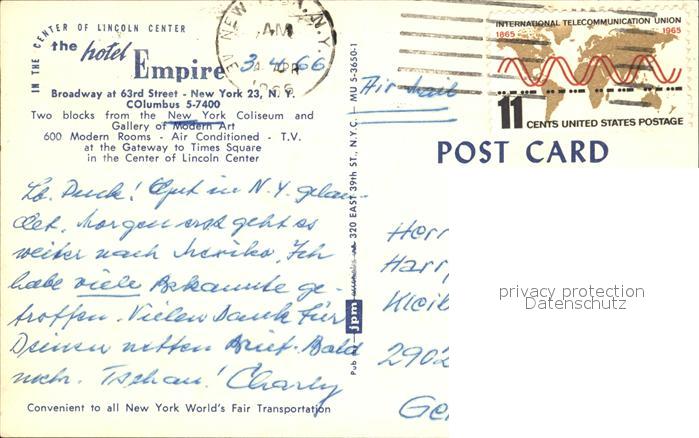 IN THE CENTER OF LINCOLN CENTER
the hotel
Empire
3.4.66
Broadway at 63rd Street - New York 23, N. Y.
COlumbus 5-7400
Two blocks from the New York Coliseum and
Gallery of Modern Art
600 Modern Rooms - Air Conditioned - T.V.
at the Gateway to Times Square
in the Center of Lincoln Center
Lb. Puck! Gut in N.Y. gelan-
det. Morgen erst geht es
weiter nach Mexiko. Ich
habe viele Bekannte ge-
troffen. Vielen Dank für
Deinen netten Brief. Bald
mehr. Tschau! Charly
Convenient to all New York World's Fair Transportation
NEW YORK, N.Y.
AM
APR
1966
320 EAST 39th ST., N.Y.C. — MU 5-3650-1
jpm
Pub
INTERNATIONAL TELECOMMUNICATION UNION
1865 1965
11 CENTS UNITED STATES POSTAGE
Air Mail
POST CARD
Herr
Harr
Klei
2902
Ge
privacy protection
Datenschutz